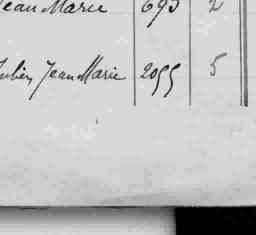 Jean Marie 693 2
Aubin Jean Marie 2055 5